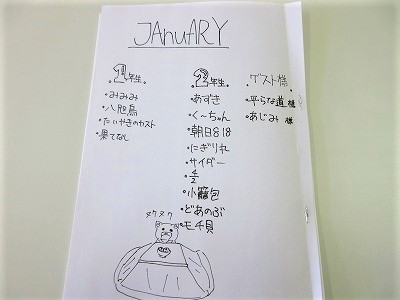 JAnuARY
1年生
・みみみ
・八咫烏
・たいやきのカスト
・果てなし
2年生
・あずき
・く〜ちゃん
・朝日818
・にぎりれ
・サイダー
・4/2
・小籠包
・どあのぶ
・モチ貝
ゲスト様
・平らな道 様
・あじみ 様
ヌクヌク